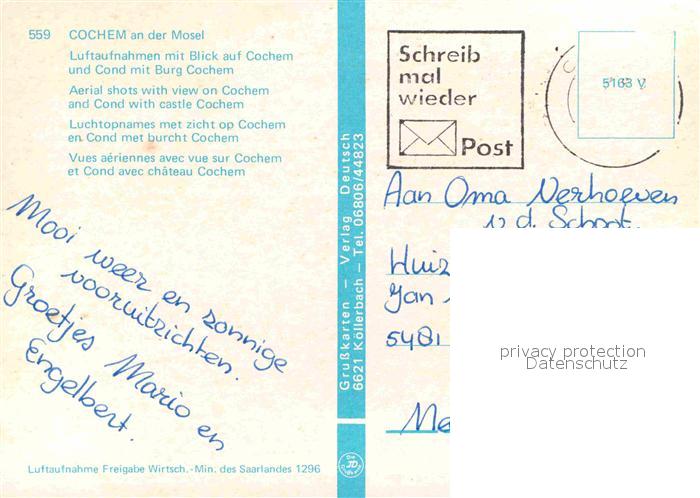 559 COCHEM an der Mosel
Luftaufnahmen mit Blick auf Cochem
und Cond mit Burg Cochem
Aerial shots with view on Cochem
and Cond with castle Cochem
Luchtopnames met zicht op Cochem
en Cond met burcht Cochem
Vues aériennes avec vue sur Cochem
et Cond avec château Cochem
Mooi weer en zonnige
vooruitzichten.
Groetjes Mario en
Engelbert.
Luftaufnahme Freigabe Wirtsch.-Min. des Saarlandes 1296
Grußkarten — Verlag Deutsch
6621 Köllerbach — Tel. 06806/44823
Schreib
mal
wieder
Post
5163 V
Aan Oma Verhoeven
v.d. Schoot.
Huiz
Jan
5481
privacy protection
Datenschutz